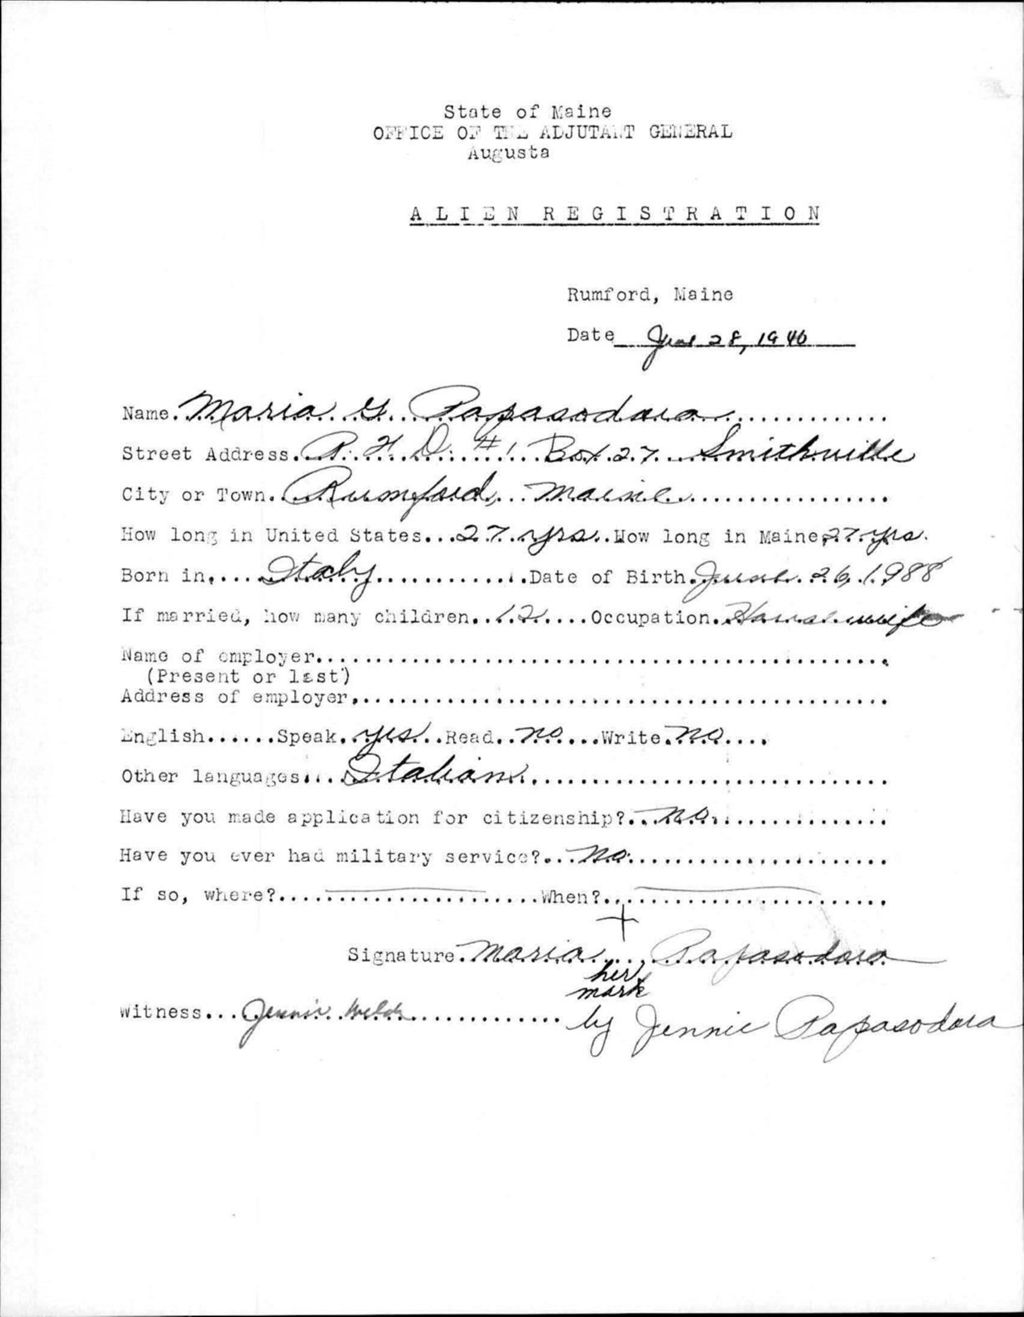 State of Maine
OFFICE OF THE ADJUTANT GENERAL
Augusta
ALIEN REGISTRATION
Rumford, Maine
Date June 28, 1940
Name. Maria G. Papasodora
Street Address. R. F. D. #1 Box 27 Smithville
City or Town. Rumford, Maine
How long in United States... 27 yrs. How long in Maine 27 yrs.
Born in. Italy Date of Birth. June 26, 1988
If married, how many children.. 12 ....Occupation. Housewife
Name of employer
(Present or last)
Address of employer
English......Speak. yes ..Read.. no ....Write. no ....
Other languages... Italian
Have you made application for citizenship?.. no
Have you ever had military service?... no
If so, where? When?
+
Signature. Maria Papasodora
her
mark
Witness... Jennie Welch by Jennie Papasodora